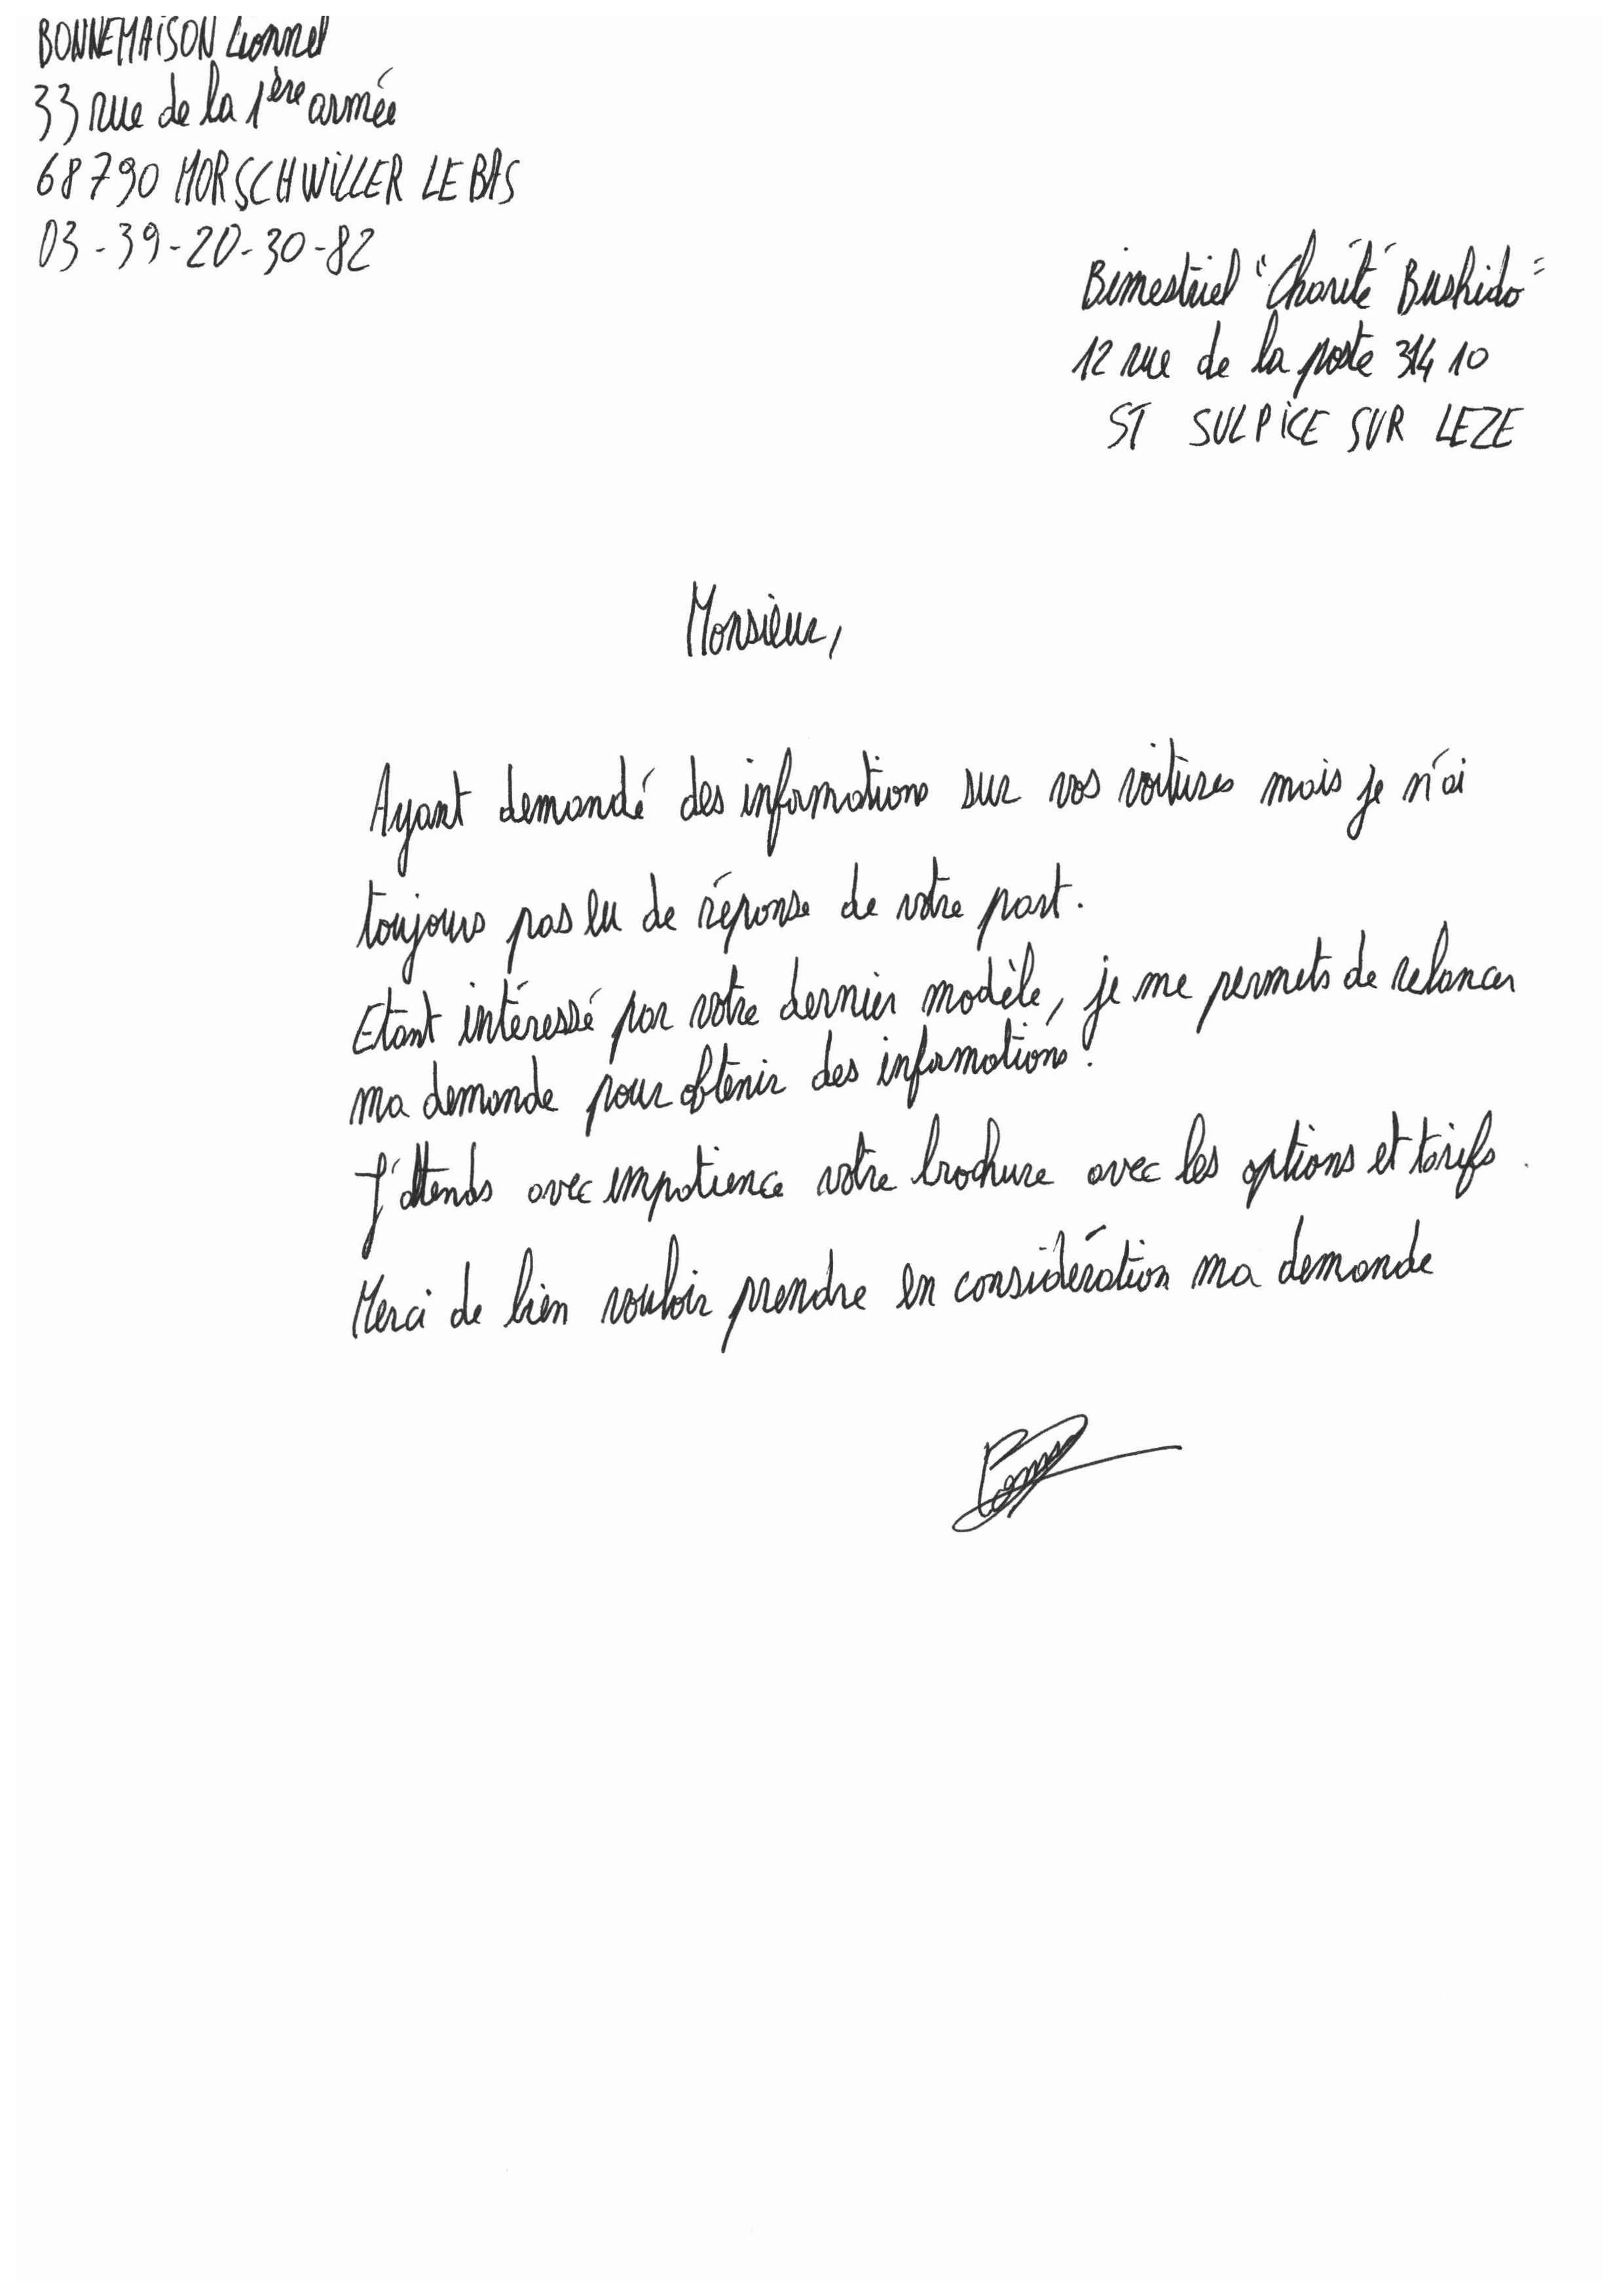 BONNEMAISON Lionnel
33 rue de la 1ère armée
68790 MORSCHWILLER LE BAS
03-39-20-30-82
Bimestriel "Charité Bushido"
12 rue de la poste 31410
ST SULPICE SUR LEZE
Monsieur,
Ayant demandé des informations sur vos voitures mais je n'ai
toujours pas eu de réponse de votre part.
Etant intéressé par votre dernier modèle, je me permets de relancer
ma demande pour obtenir des informations.
J'attends avec impatience votre brochure avec les options et tarifs.
Merci de bien vouloir prendre en considération ma demande